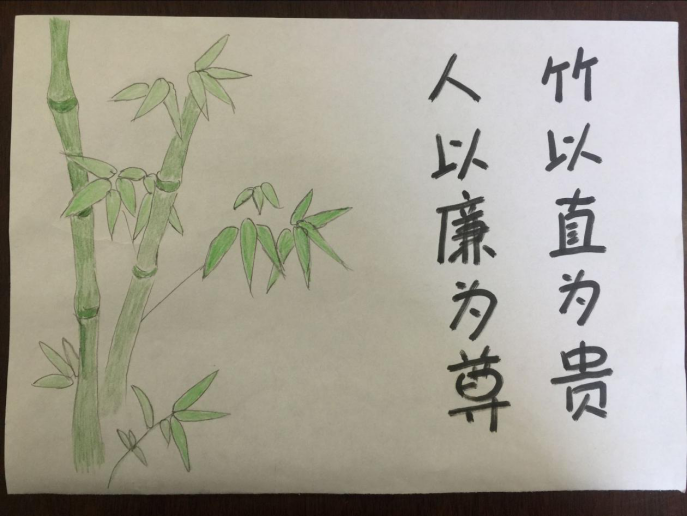 竹以直为贵
人以廉为尊